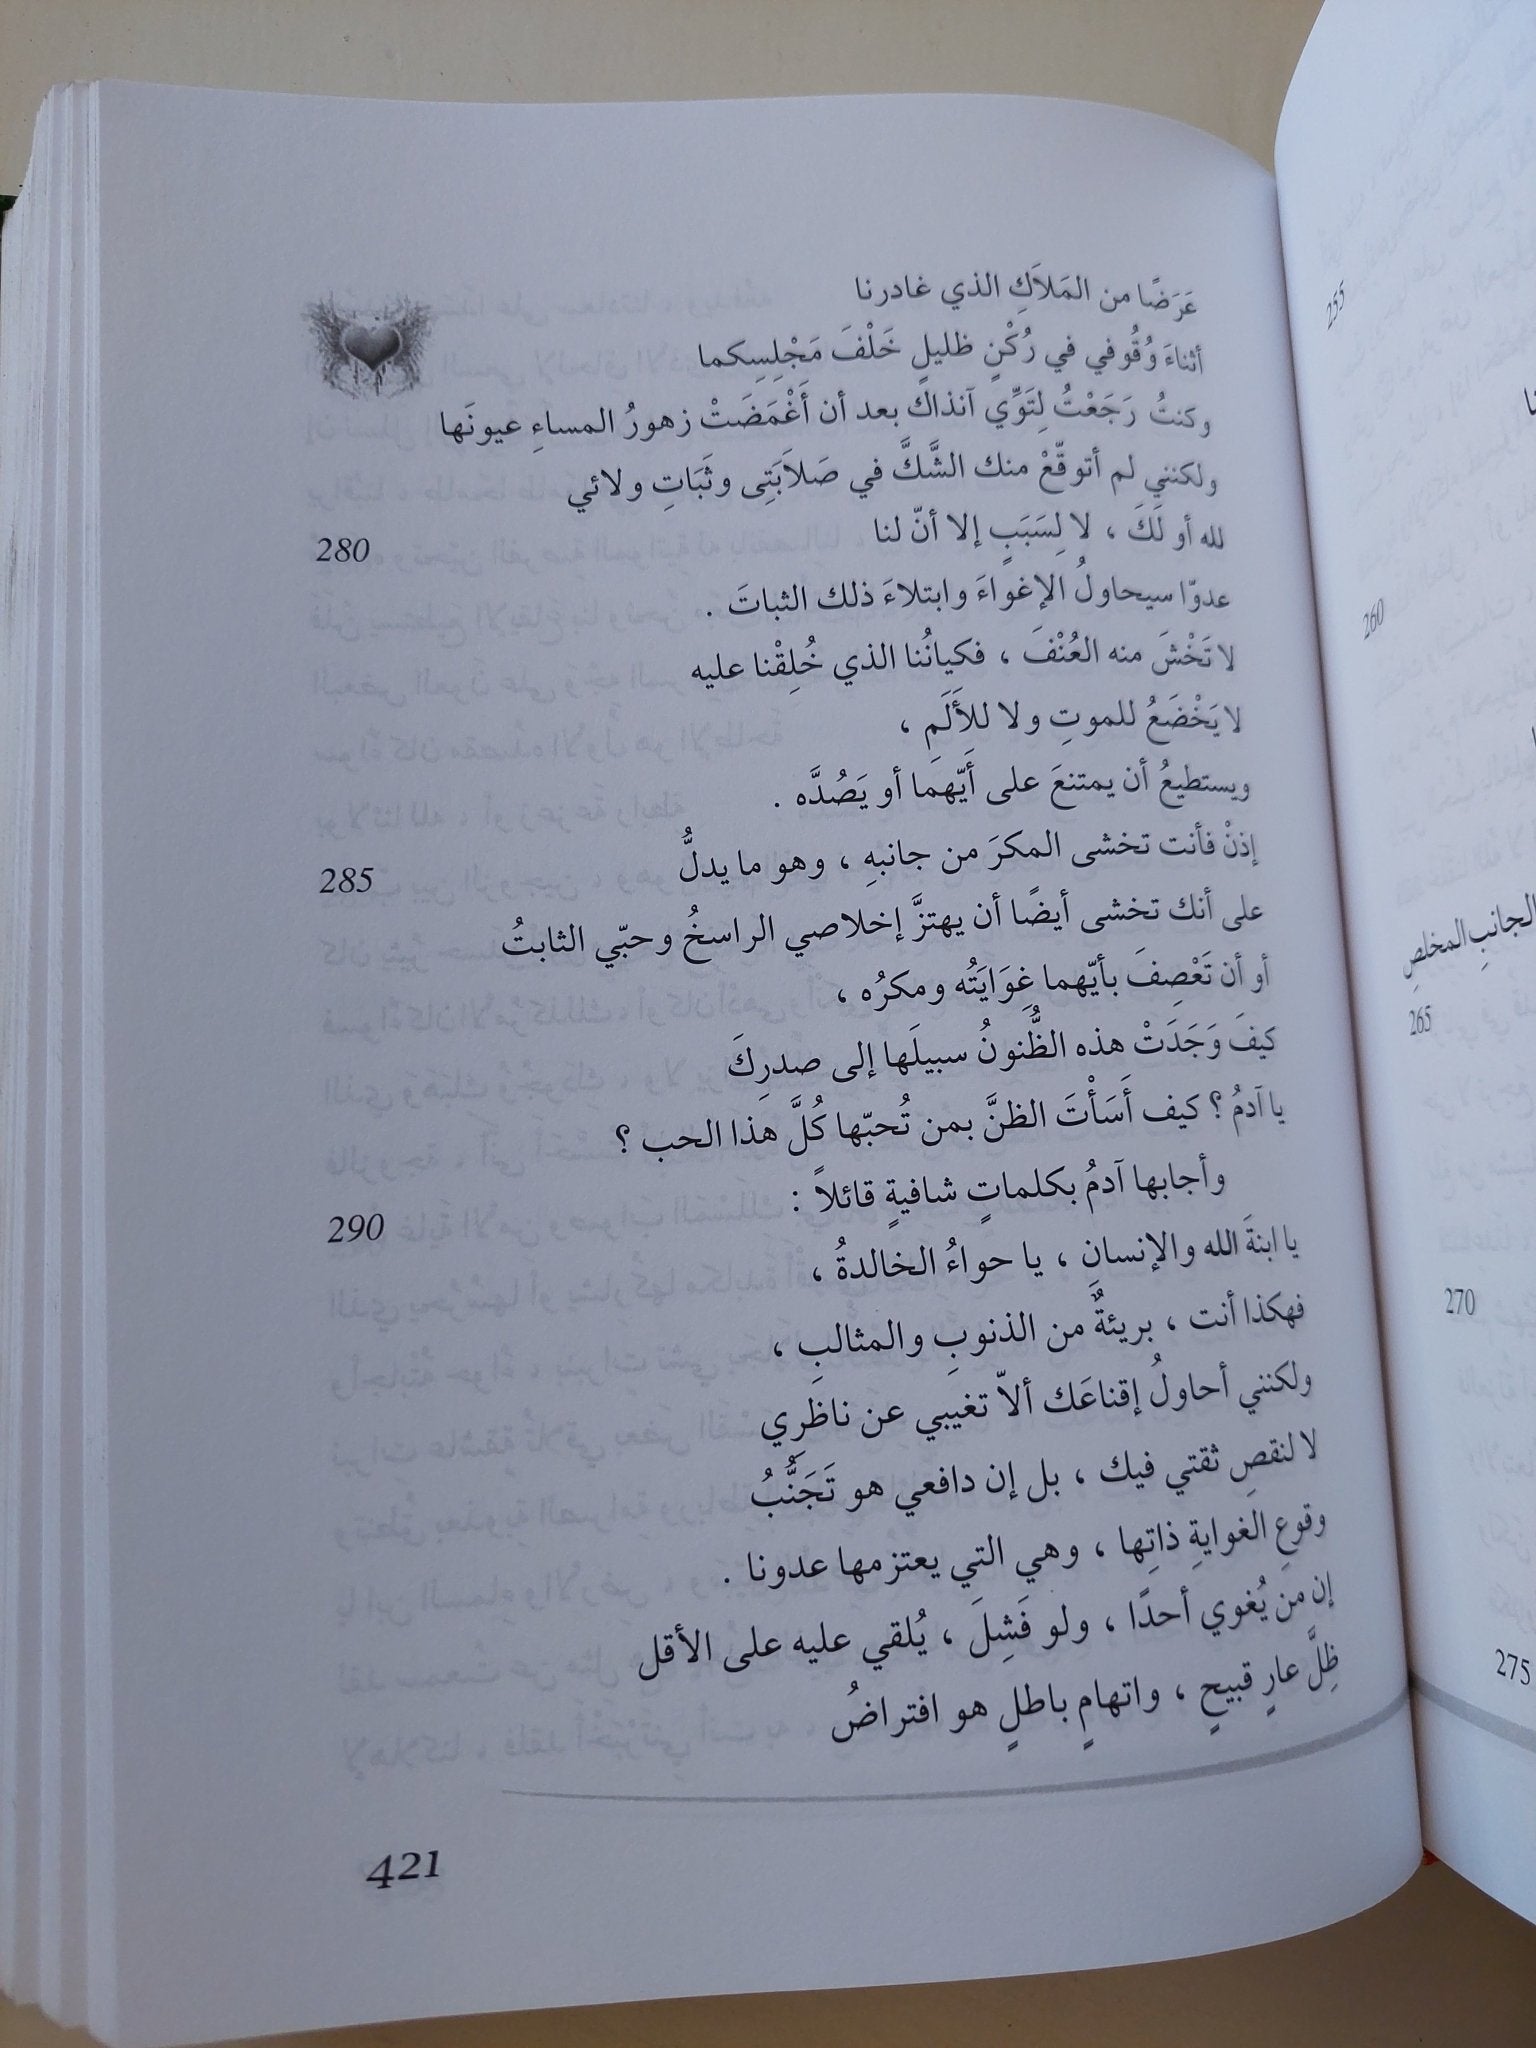 عَرَضًا من المَلاَكِ الذي غادرنا
أثناءَ وُقُوفي في رُكْنٍ ظليلٍ خَلْفَ مَجْلِسِكما
وكنتُ رَجَعْتُ لِتَوِّي آنذاك بعد أن أَغْمَضَتْ زهورُ المساءِ عيونَها
ولكنني لم أتوقّعْ منك الشَّكَّ في صَلاَبَتِى وثَبَاتِ ولائي
لله أو لَكَ ، لا لِسَبَبٍ إلا أنّ لنا 280
عدوّا سيحاولُ الإغواءَ وابتلاءَ ذلك الثباتَ .
لا تَخْشَ منه العُنْفَ ، فكيانُنا الذي خُلِقْنا عليه
لا يَخْضَعُ للموتِ ولا للأَلَمِ ،
ويستطيعُ أن يمتنعَ على أَيّهمَا أو يَصُدَّه .
إذنْ فأنت تخشى المكرَ من جانبهِ ، وهو ما يدلُّ 285
على أنك تخشى أيضًا أن يهتزَّ إخلاصي الراسخُ وحبّي الثابتُ
أو أن تَعْصِفَ بأيّهما غِوَايَتُه ومكرُه ،
كيفَ وَجَدَتْ هذه الظُّنونُ سبيلَها إلى صدرِكَ
يا آدمُ ؟ كيف أَسَأْتَ الظنَّ بمن تُحبّها كُلَّ هذا الحب ؟
وأجابها آدمُ بكلماتٍ شافيةٍ قائلاً : 290
يا ابنةَ الله والإنسانِ ، يا حواءُ الخالدةُ ،
فهكذا أنت ، بريئةٌ من الذنوبِ والمثالبِ ،
ولكنني أحاولُ إقناعَك ألاّ تغيبي عن ناظَرِي
لا لنقصِ ثقتي فيك ، بل إن دافعي هو تَجَنُّبُ
وقوعِ الغوايةِ ذاتِها ، وهي التي يعتزمها عدونا .
إن من يُغوي أحدًا ، ولو فَشِلَ ، يُلقي عليه على الأقل
ظِلَّ عارٍ قبيحٍ ، واتهامٍ باطلٍ هو افتراضُ
421
255
260
الجانبِ المخلصِ
265
270
275